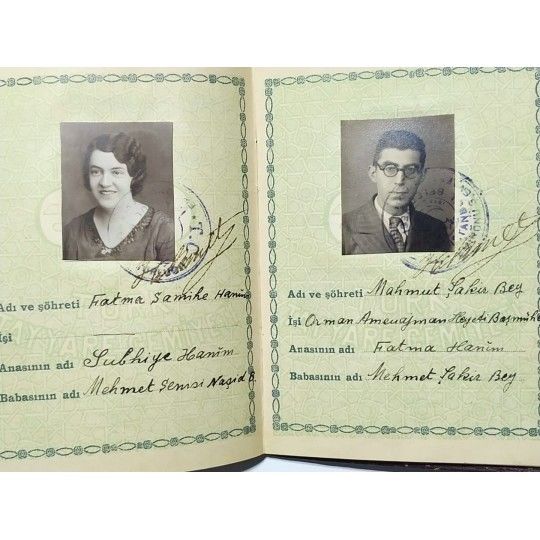 Adı ve şöhreti Fatma Samihe Hanım
İşi
Anasının adı Subhiye Hanım
Babasının adı Mehmet Şemsi Naşid B.
Adı ve şöhreti Mahmut Şakir Bey
İşi Orman Amenajman Heyeti Başmühe
Anasının adı Fatma Hanım
Babasının adı Mehmet Şakir Bey
T.C.